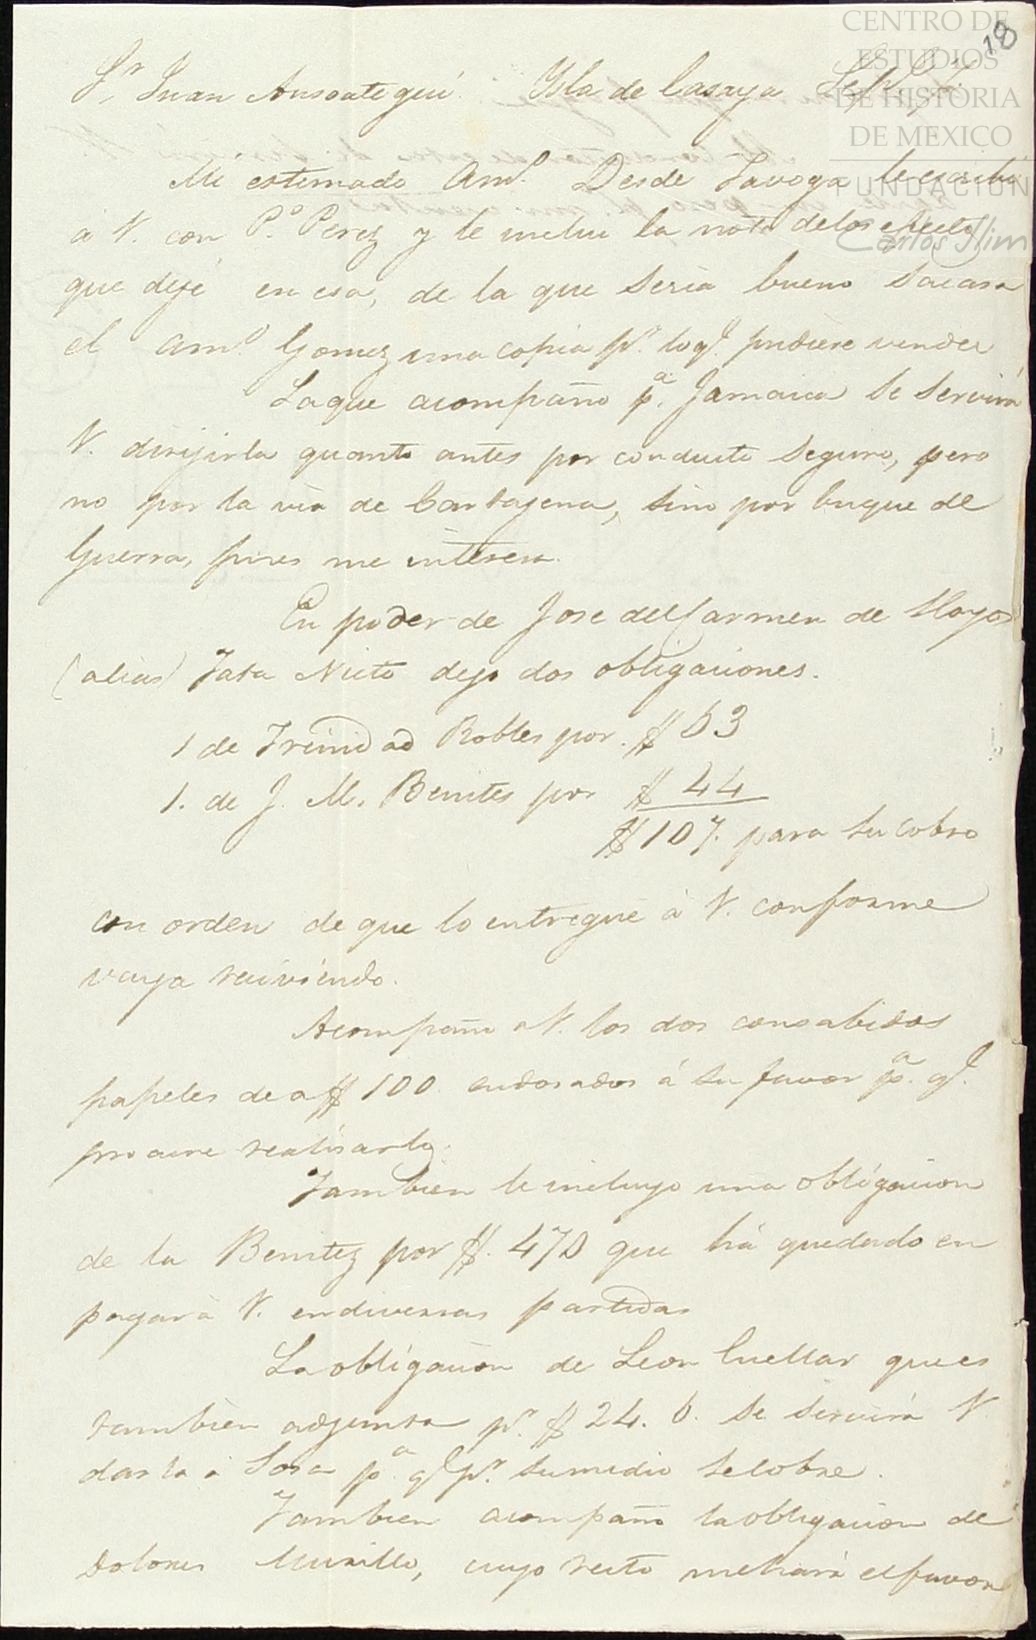 CENTRO DE
ESTUDIOS
DE HISTORIA
DE MEXICO
FUNDACIÓN
Carlos Slim
18
Sr. Juan Ansoategui. Ysla de Casaya
Mi estimado amo. Desde Tavoga le escribi
a V. con Po. Perez y le inclui la nota de los efectos
que dejé en esa, de la que seria bueno sacara
el amo. Gomez una copia pr. lo q. pudiere vender
La que acompaño pa. Jamaica se servirá
V. dirijirla quanto antes por conducto seguro, pero
no por la via de Cartagena, sino por buque de
Guerra, pues me interesa.
En poder de Jose del Carmen de Hoyos
(alias) Tata Nieto dejo dos obligaciones.
1 de Trinidad Robles por $ 63
1. de J. M. Benites por $ 44
$ 107. para su cobro
con orden de que lo entregue á V. conforme
vaya reciviendo.
Acompaño a V. los dos consabidos
papeles de a $ 100 endosados á su favor pa. q.
procure realisarlo.
Tambien le incluyo una obligacion
de la Benitez por $. 470 que há quedado en
pagar a V. en diversas partidas
La obligacion de Leon Cuellar que es
tambien adjunta pr. $ 24. 6. se servirá V.
darla a Sosa pa. q. pr. su medio se cobre.
Tambien acompaño la obligacion de
Dolores Murillo, cuyo resto me hará el favor